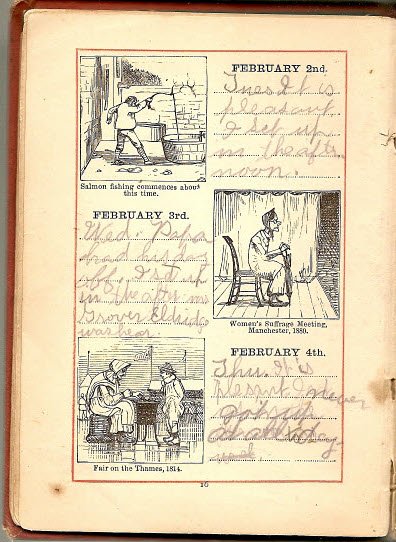 FEBRUARY 2nd.
Tues. It is
pleasant
I set up
in the after
noon.
Salmon fishing commences about
this time.
FEBRUARY 3rd.
Wed. Papa
had his
off. I set up
in the
Grover Eldridg
was hear.
Women's Suffrage Meeting,
Manchester, 1880.
FEBRUARY 4th.
Thu. It is
got up
Fair on the Thames, 1814.
16